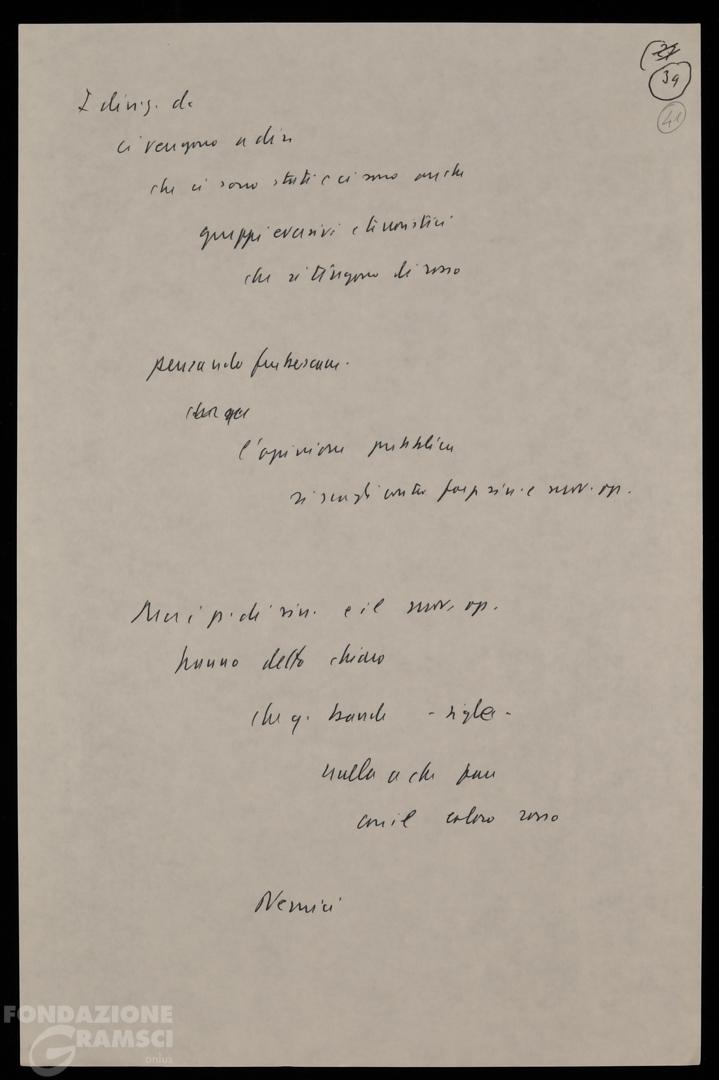 39
41
I dirig. dc
ci vengono a dire
che ci sono stati e ci sono anche
gruppi eversivi e terroristici
che si tingono di rosso
pensando furbescam.
che
l'opinione pubblica
si scagli contro forze sin. e mov. op.
Ma i p. di sin. e il mov. op.
hanno detto chiaro
che q. bande - sigle -
nulla a che fare
con il colore rosso
Nemici
FONDAZIONE
GRAMSCI
onlus